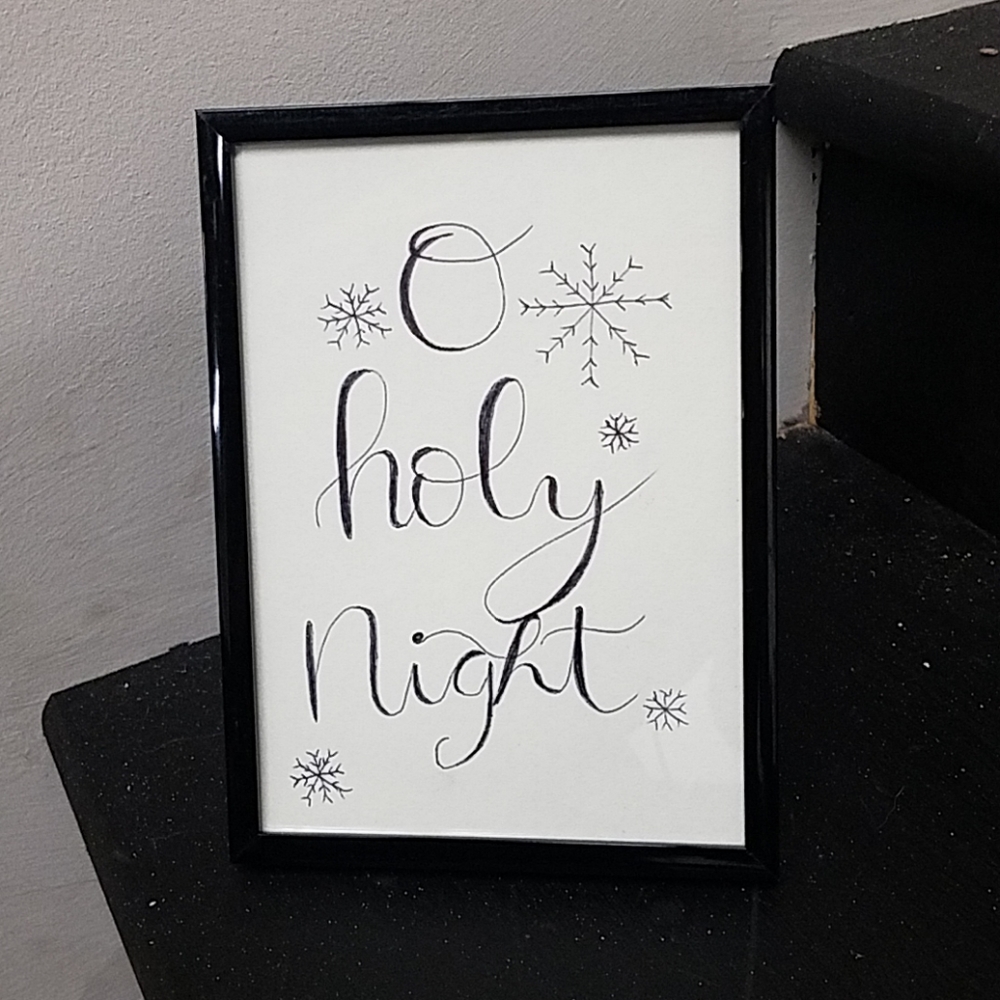 O
holy
Night